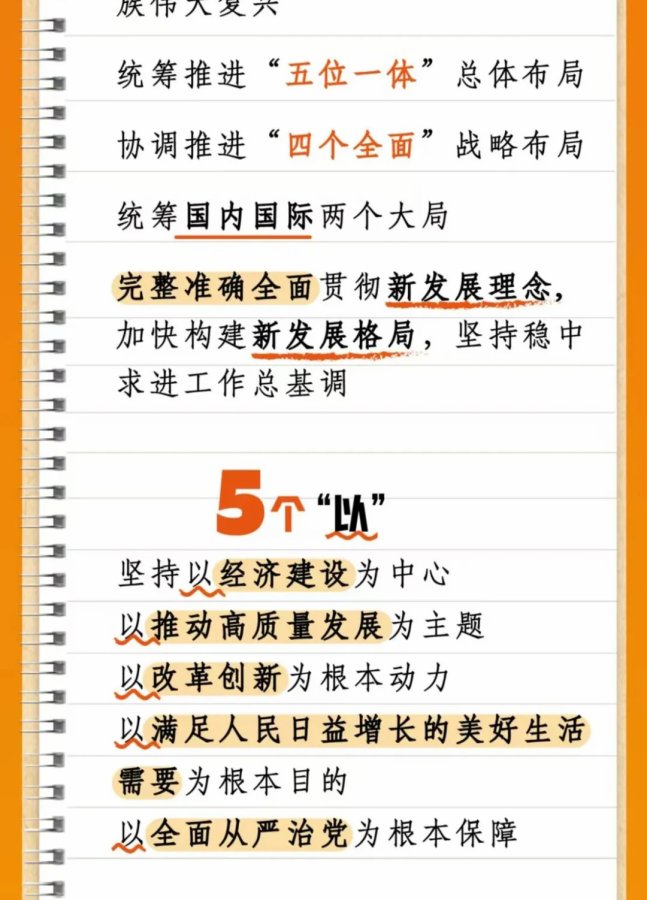 族伟大复兴
统筹推进“五位一体”总体布局
协调推进“四个全面”战略布局
统筹国内国际两个大局
完整准确全面贯彻新发展理念，
加快构建新发展格局，坚持稳中
求进工作总基调
5个“以”
坚持以经济建设为中心
以推动高质量发展为主题
以改革创新为根本动力
以满足人民日益增长的美好生活
需要为根本目的
以全面从严治党为根本保障